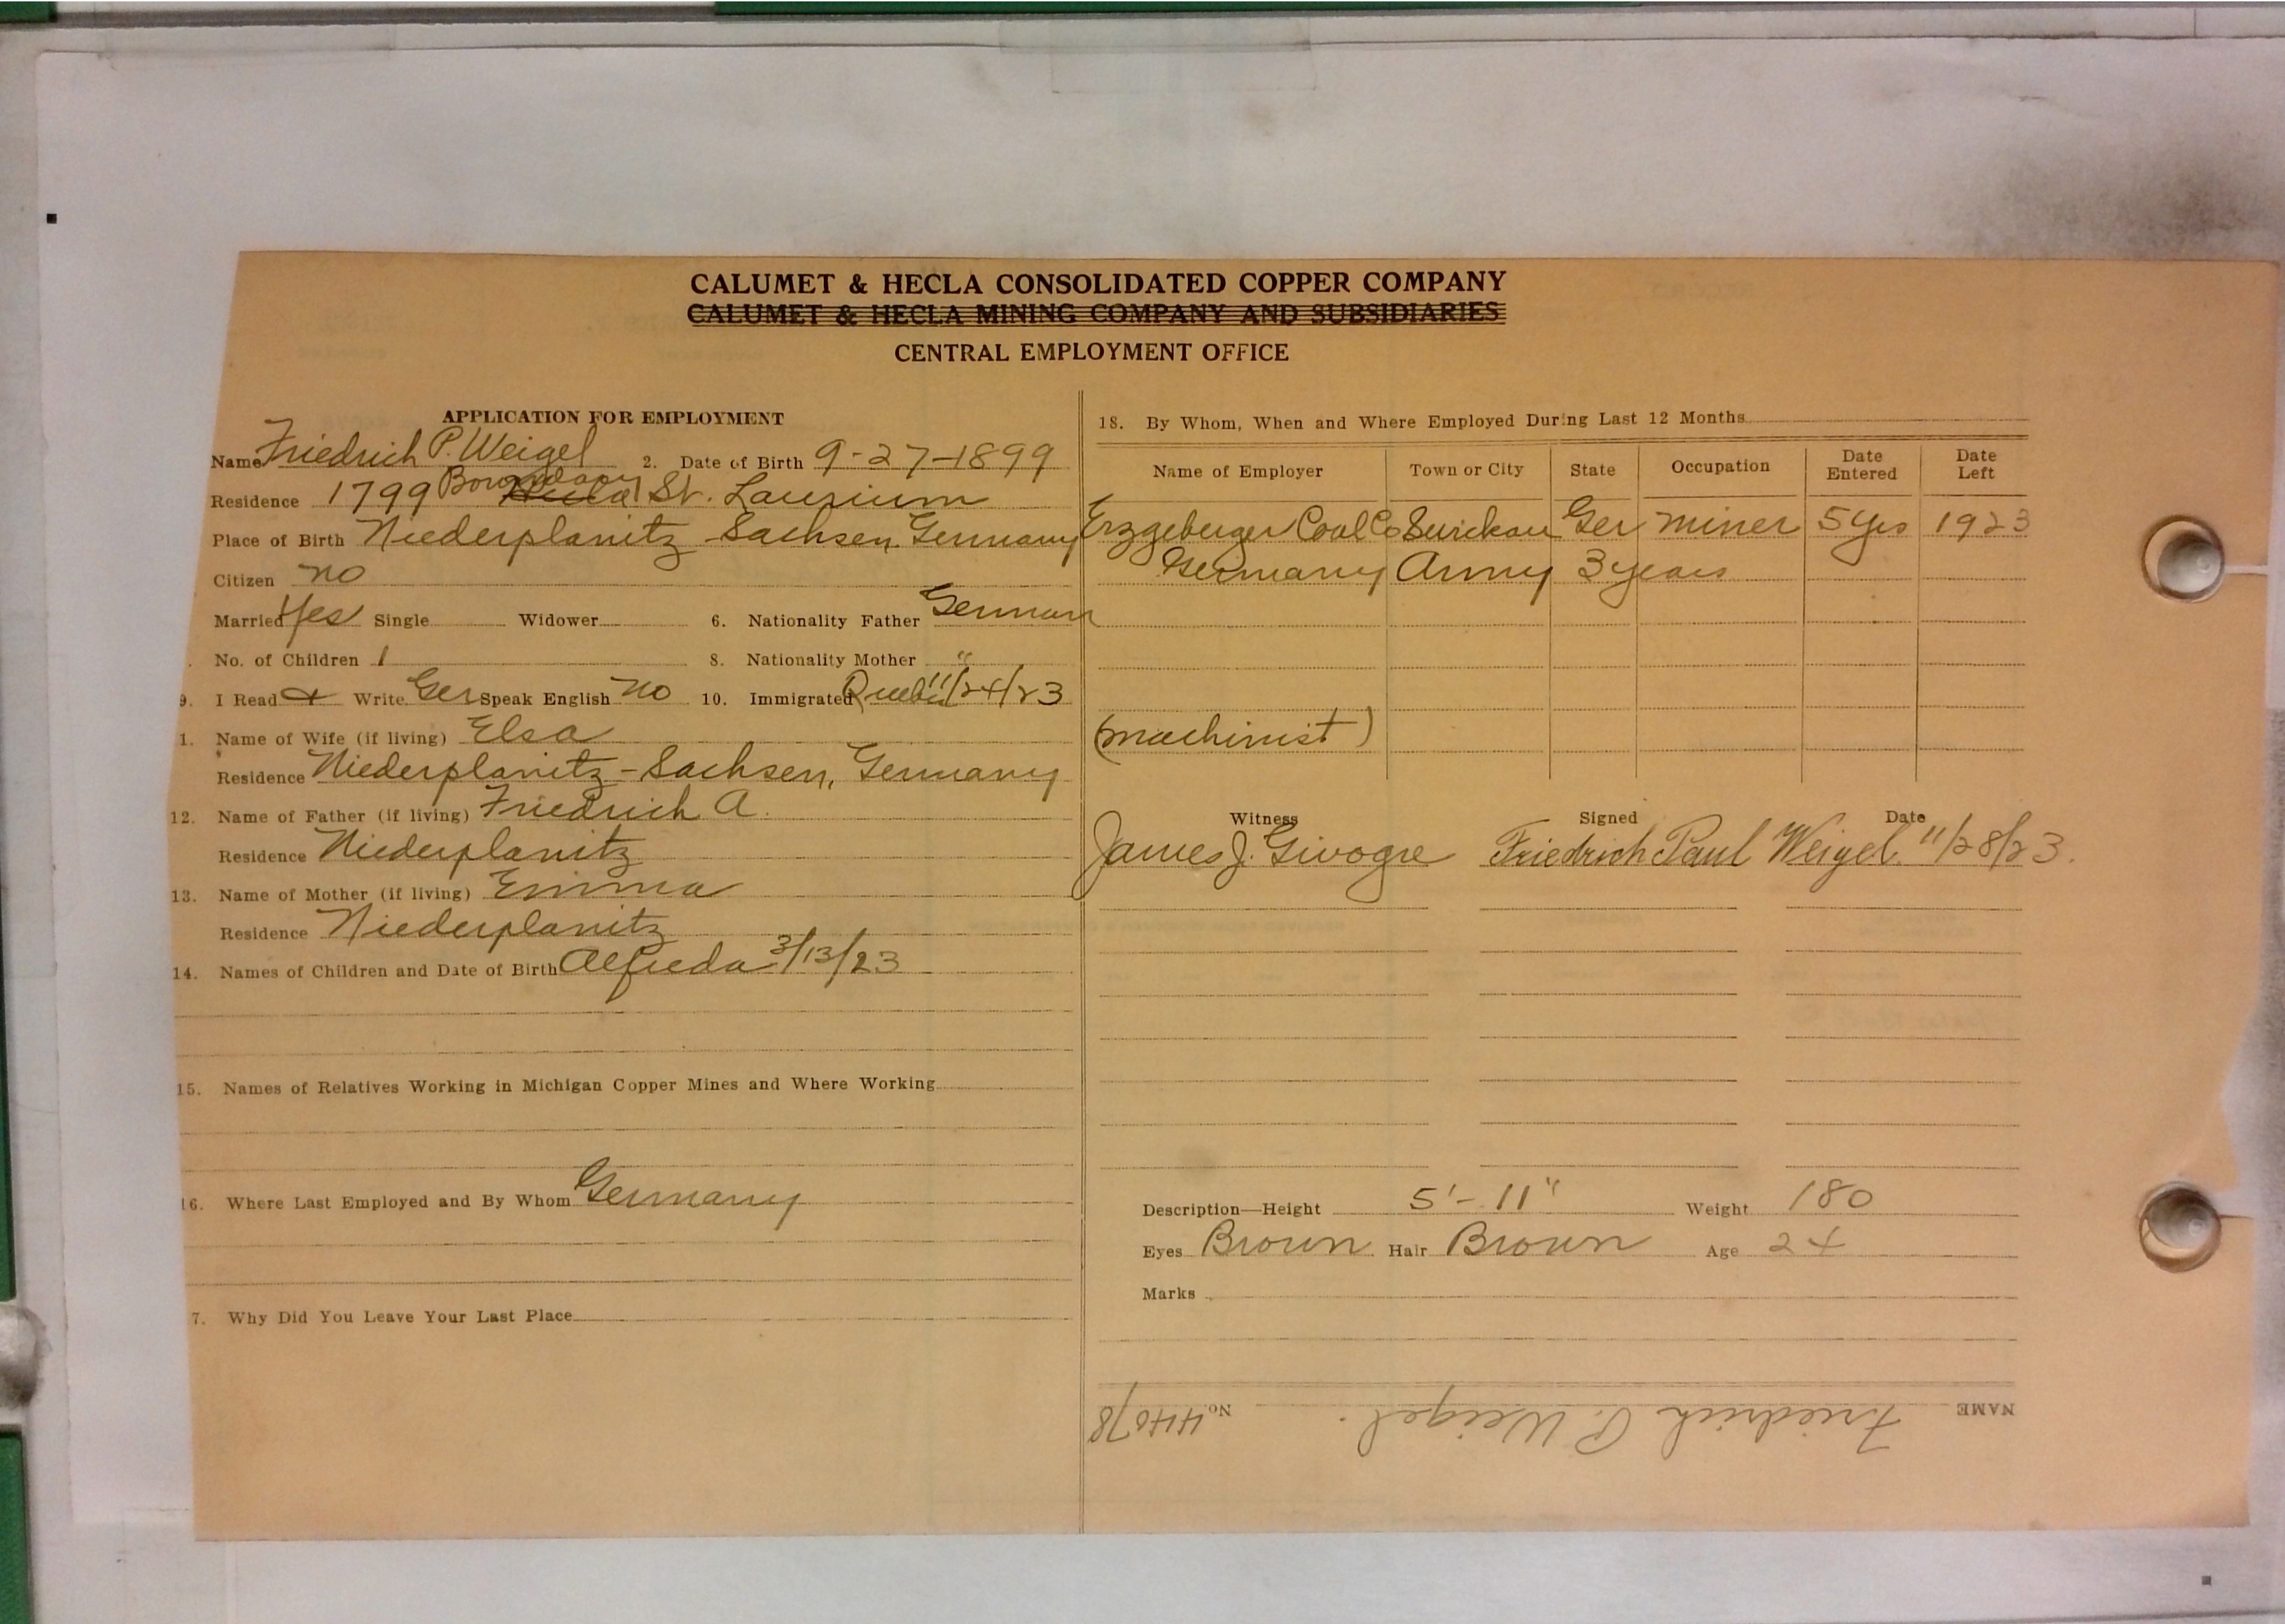 CALUMET & HECLA CONSOLIDATED COPPER COMPANY
CALUMET & HECLA MINING COMPANY AND SUBSIDIARIES
CENTRAL EMPLOYMENT OFFICE
APPLICATION FOR EMPLOYMENT
Name Friedrich P. Weigel 2. Date of Birth 9-27-1899
Boundary
Residence 1799 Hecla St. Laurium
Place of Birth Niederplanitz Sachsen Germany
Citizen no
Married Yes Single Widower 6. Nationality Father German
No. of Children 1 8. Nationality Mother "
9. I Read + Write Ger Speak English no 10. Immigrated Quebec 11/24/23
1. Name of Wife (if living) Elsa
Residence Niederplanitz - Sachsen, Germany
12. Name of Father (if living) Friedrich A.
Residence Niederplanitz
13. Name of Mother (if living) Emma
Residence Niederplanitz
14. Names of Children and Date of Birth Alfreda 3/13/23
15. Names of Relatives Working in Michigan Copper Mines and Where Working
16. Where Last Employed and By Whom Germany
7. Why Did You Leave Your Last Place
18. By Whom, When and Where Employed During Last 12 Months
Name of Employer Town or City State Occupation Date Entered Date Left
Erzgeberger Coal Co Swickau Ger miner 5 yrs 1923
Germany Army 3 years
(machinist)
Witness Signed Date
James J. Givogre Friedrich Paul Weigel. 11/28/23.
Description—Height 5'-11" Weight 180
Eyes Brown Hair Brown Age 24
Marks
NAME Friedrich P. Weigel. No. 44078